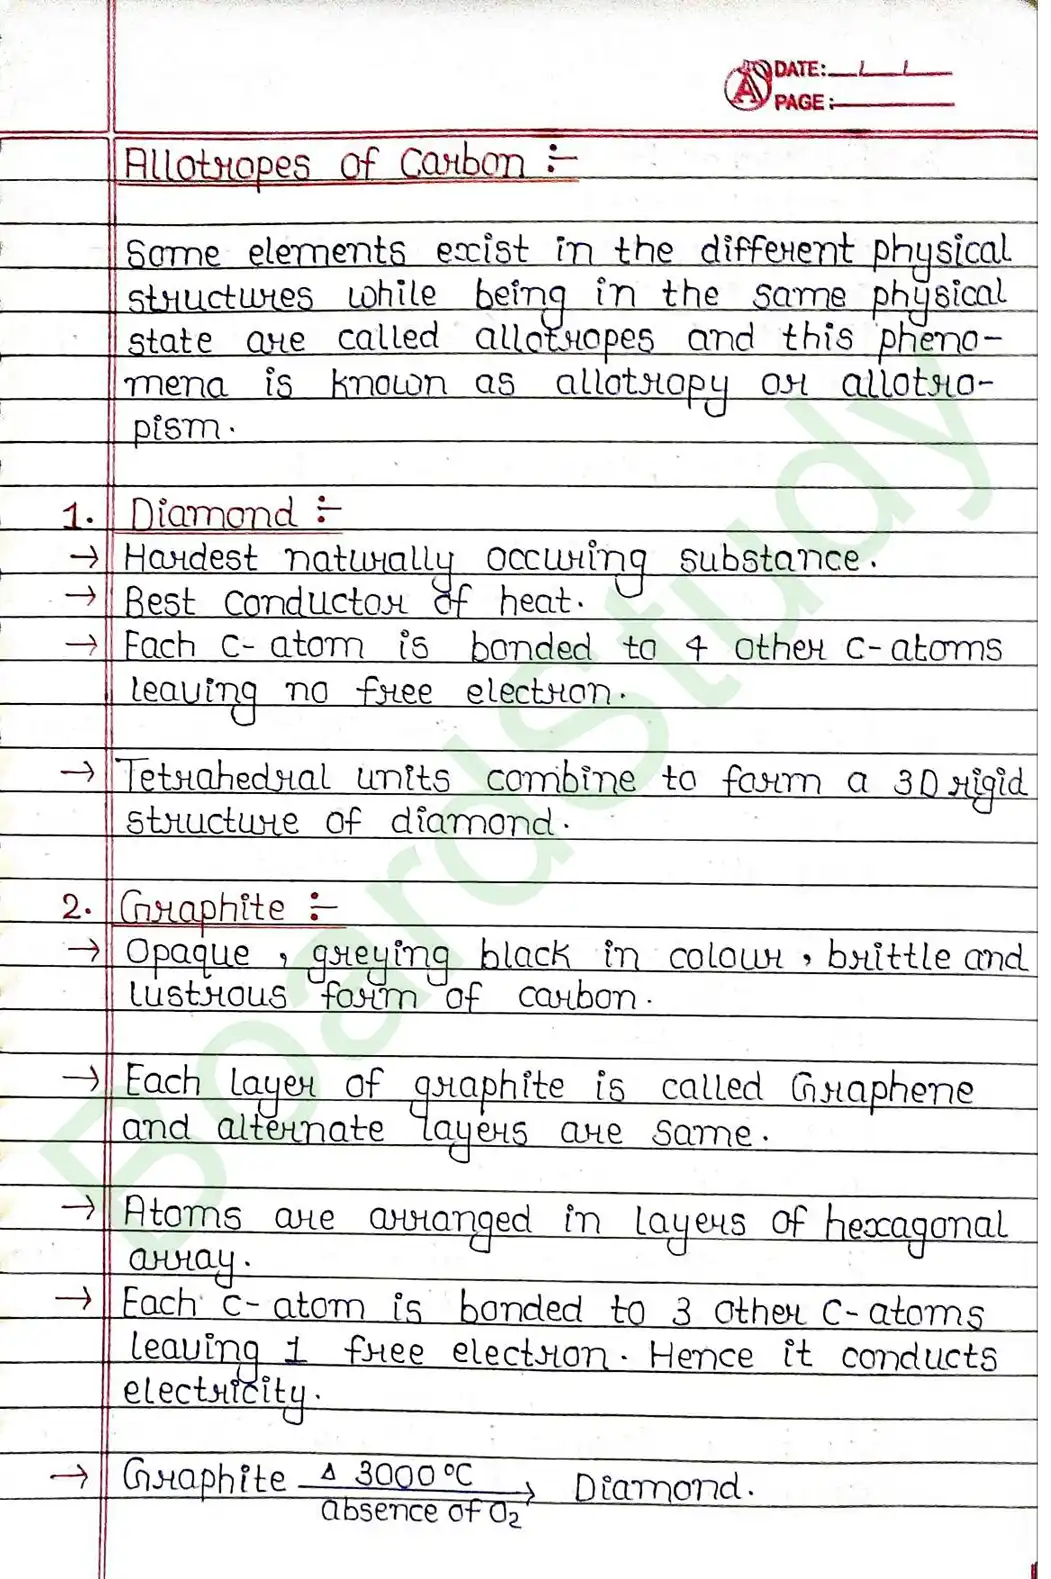 DATE:
PAGE:
Allotropes of Carbon :-
Some elements exist in the different physical
structures while being in the same physical
state are called allotropes and this pheno-
mena is known as allotropy or allotro-
pism.
1. Diamond :-
→ Hardest naturally occuring substance.
→ Best conductor of heat.
→ Each C-atom is bonded to 4 other C-atoms
leaving no free electron.
→ Tetrahedral units combine to form a 3D rigid
structure of diamond.
2. Graphite :-
→ Opaque, greying black in colour, brittle and
lustrous form of carbon.
→ Each layer of graphite is called Graphene
and alternate layers are same.
→ Atoms are arranged in layers of hexagonal
array.
→ Each C-atom is bonded to 3 other C-atoms
leaving 1 free electron. Hence it conducts
electricity.
→ Graphite Δ 3000 °C → Diamond.
absence of O₂
BoardStudy